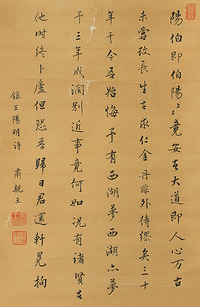 陽伯即伯陽〻竟安在大道即人心万古
未嘗改長生在求仁金丹非外待繆矣三十
年于今吾始悔予有西湖夢西湖亦夢
予三年成闊別近事竟何如況有諸賢在
他時終卜廬但恐吾歸日君還軒冕拘
錄王陽明詩 肅親王